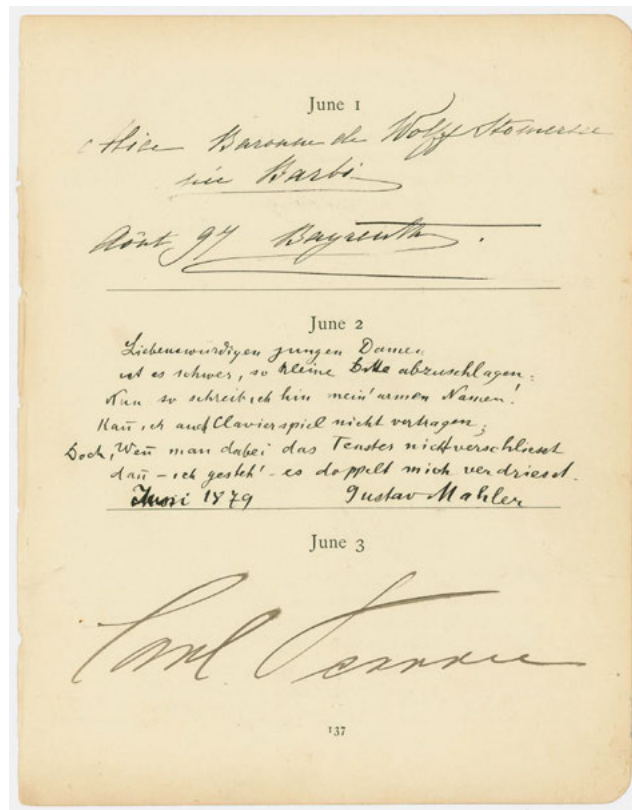 June 1
Alice Baronne de Wolff Stomersee
née Barbi
Août 97 Bayreuth.
June 2
Liebenswürdigen jungen Damen
ist es schwer, so kleine Bitte abzuschlagen.
Nun so schreib ich hin mein' armen Namen!
Kañ ich auch Clavierspiel nicht vertragen;
Doch, Weñ man dabei das Fenster nicht verschliesst
dañ – ich gesteh' – es doppelt mich verdriesst.
Juni 1879 Gustav Mahler
June 3
Carl
137